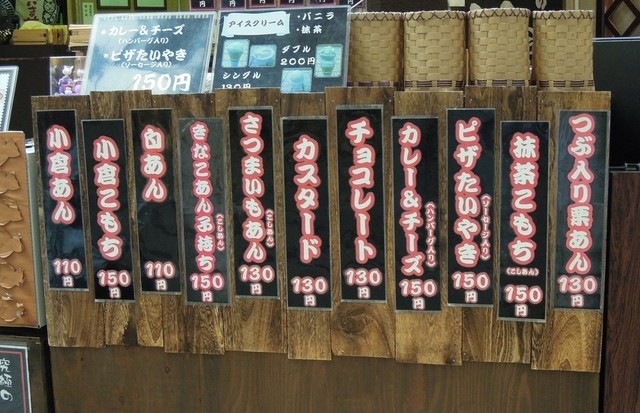 ・カレー&チーズ
(ハンバーグ入り)
・ピザたいやき
(ソーセージ入り)
150円
アイスクリーム
・バニラ
・抹茶
ダブル
200円
シングル
130円
小倉あん
110円
小倉こもち
150円
白あん
110円
きなこあん子持ち
(こしあん)
150円
さつまいもあん
(こしあん)
130円
カスタード
130円
チョコレート
130円
カレー&チーズ
(ハンバーグ入り)
150円
ピザたいやき
(ソーセージ入り)
150円
抹茶こもち
(こしあん)
150円
つぶ入り栗あん
130円